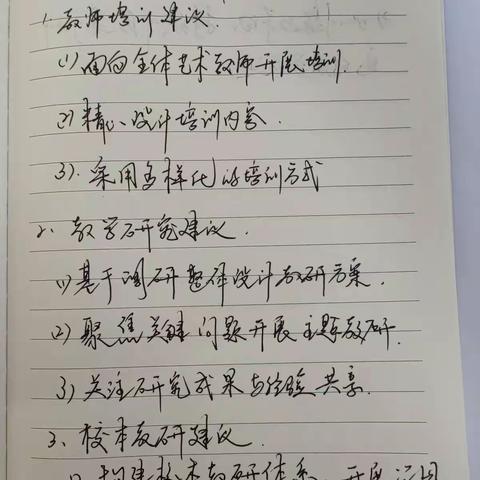 1、教师培训建议.
(1) 面向全体艺术教师开展培训.
(2) 精心设计培训内容.
(3). 采用多样化的培训方式
2、教学研究建议.
(1) 基于调研整体设计教研方案.
(2) 聚焦关键问题开展主题教研.
(3) 关注研究成果与经验共享.
3、校本教研建议.
(1) 构建校本教研体系, 开展